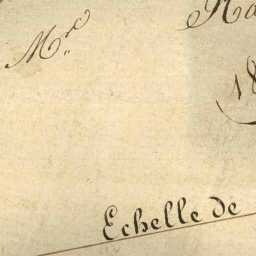 Mr
18
Echelle de